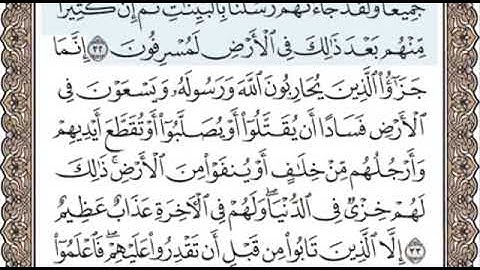 جَمِيعًا وَلَقَدْ جَآءَتْهُمْ رُسُلُنَا بِٱلْبَيِّنَٰتِ ثُمَّ إِنَّ كَثِيرًا
مِّنْهُم بَعْدَ ذَٰلِكَ فِى ٱلْأَرْضِ لَمُسْرِفُونَ ٣٢ إِنَّمَا
جَزَٰٓؤُا۟ ٱلَّذِينَ يُحَارِبُونَ ٱللَّهَ وَرَسُولَهُۥ وَيَسْعَوْنَ فِى
ٱلْأَرْضِ فَسَادًا أَن يُقَتَّلُوٓا۟ أَوْ يُصَلَّبُوٓا۟ أَوْ تُقَطَّعَ أَيْدِيهِمْ
وَأَرْجُلُهُم مِّنْ خِلَٰفٍ أَوْ يُنفَوْا۟ مِنَ ٱلْأَرْضِ ۚ ذَٰلِكَ
لَهُمْ خِزْىٌ فِى ٱلدُّنْيَا ۖ وَلَهُمْ فِى ٱلْءَاخِرَةِ عَذَابٌ عَظِيمٌ
٣٣ إِلَّا ٱلَّذِينَ تَابُوا۟ مِن قَبْلِ أَن تَقْدِرُوا۟ عَلَيْهِمْ ۖ فَٱعْلَمُوٓا۟